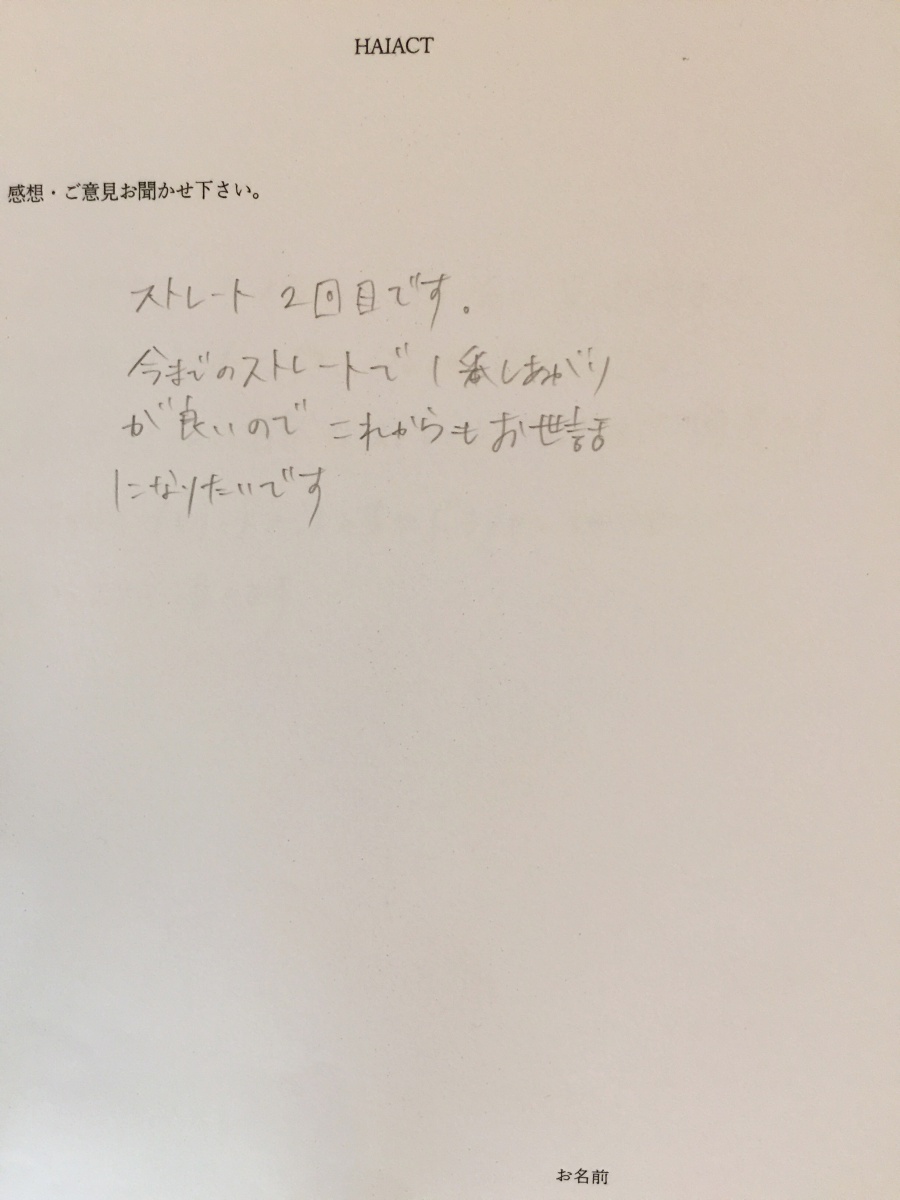 HAIACT
感想・ご意見お聞かせ下さい。
ストレート 2回目です。
今までのストレートで 1番しあがり
が良いので これからもお世話
になりたいです
お名前